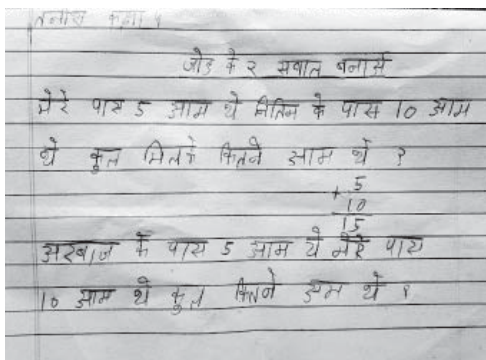 कक्षा 4
जोड के २ सवाल बनाये
मेरे पास 5 आम थे नितिन के पास 10 आम
थे कुल मिलके कितने आम थे ?
+ 5
10
15
अरबाज के पास 5 आम थे मेरे पास
10 आम थे कुल कितने आम थे ?